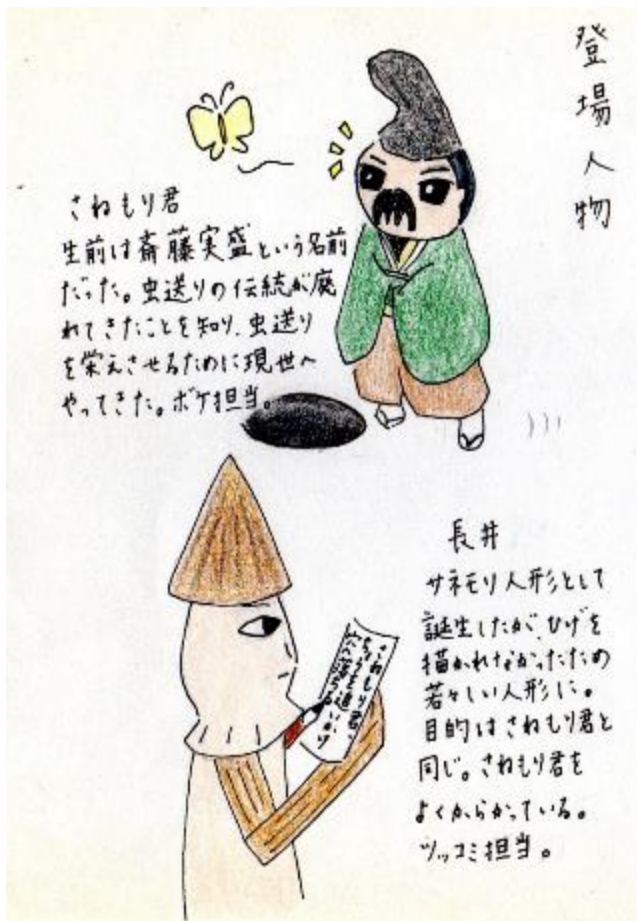 登場人物
さねもり君
生前は斎藤実盛という名前
だった。虫送りの伝統が廃
れてきたことを知り、虫送り
を栄えさせるために現世へ
やってきた。ボケ担当。
長井
サネモリ人形として
誕生したが、ひげを
描かれなかったため
若々しい人形に。
目的はさねもり君と
同じ。さねもり君を
よくからかっている。
ツッコミ担当。
さねもり君、
ちょうを追いかけ
穴へ落ちる